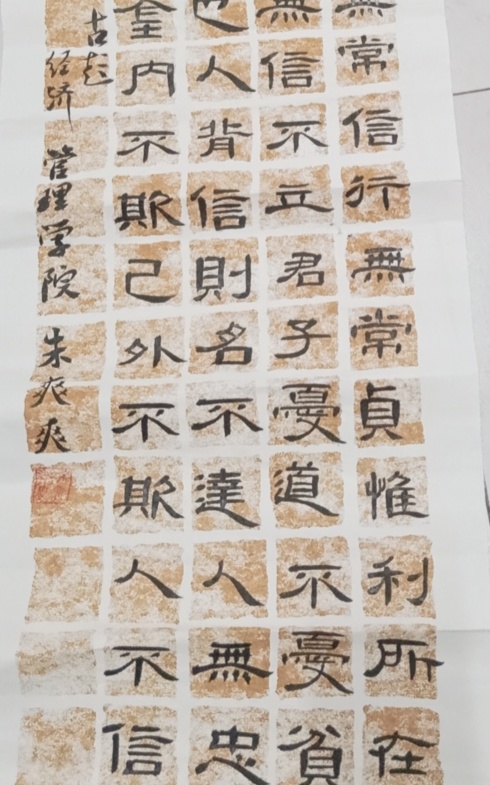 無常信行無常貞惟利所在
無信不立君子憂道不憂貧
也人背信則名不達人無忠
内不欺己外不欺人不信
古
经济管理学院朱爽爽